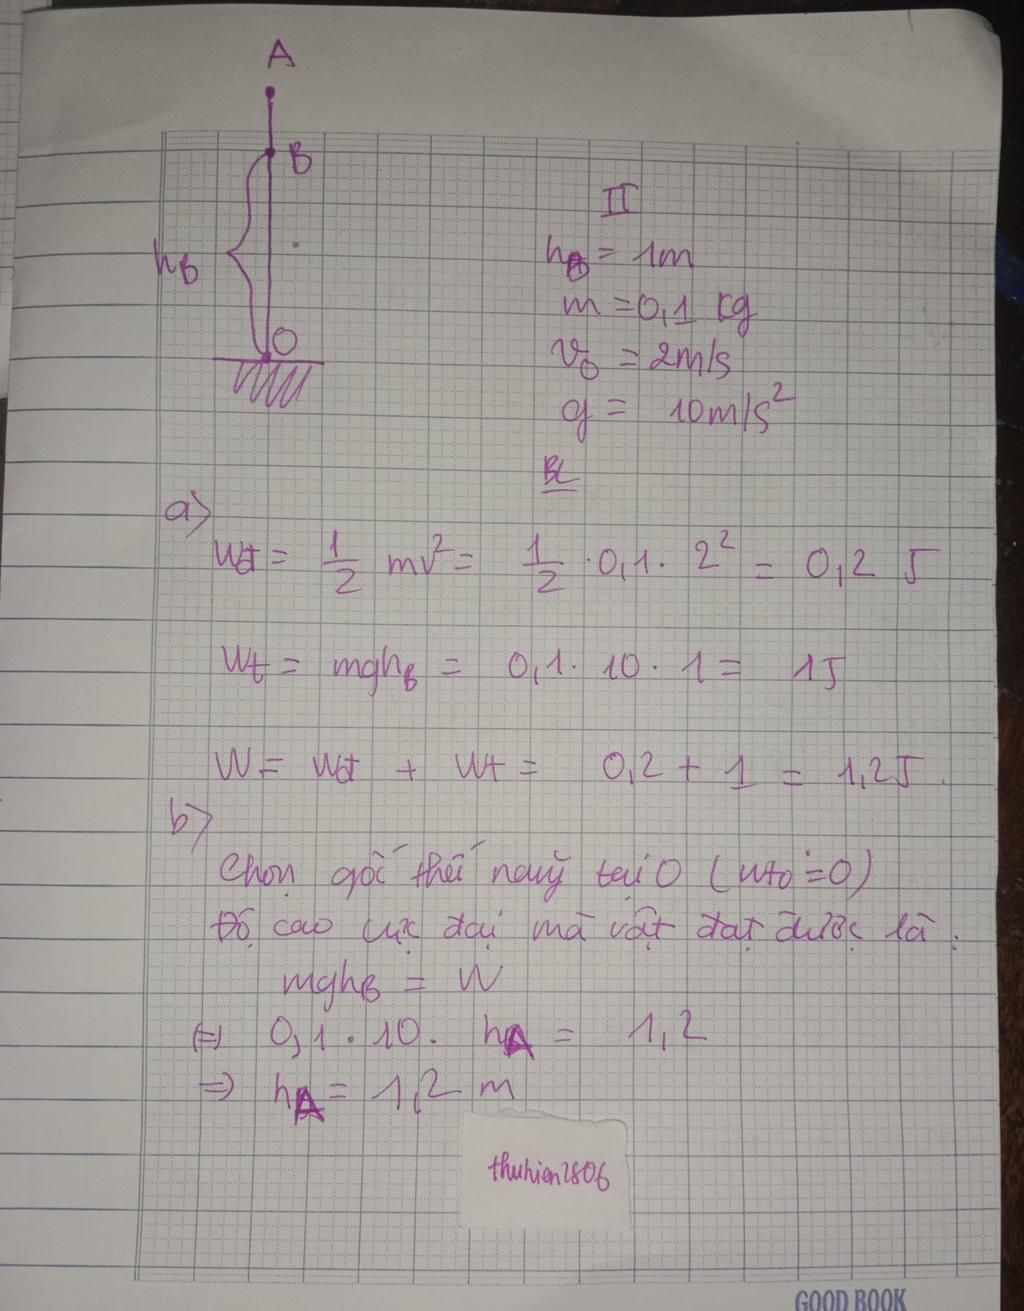 A
B
hB
O
II
hB = 1m
m = 0,1 kg
v0 = 2m/s
g = 10m/s²
BL
a>
Wđ = 1/2 mv² = 1/2 . 0,1 . 2² = 0,2 J
Wt = mghB = 0,1 . 10 . 1 = 1J
W = Wđ + Wt = 0,2 + 1 = 1,2J.
b>
Chọn gốc thế năng tại O (Wto = 0)
Độ cao cực đại mà vật đạt được là :
mghB = W
⇔ 0,1 . 10 . hA = 1,2
⇒ hA = 1,2 m
thuhien2806
GOOD BOOK